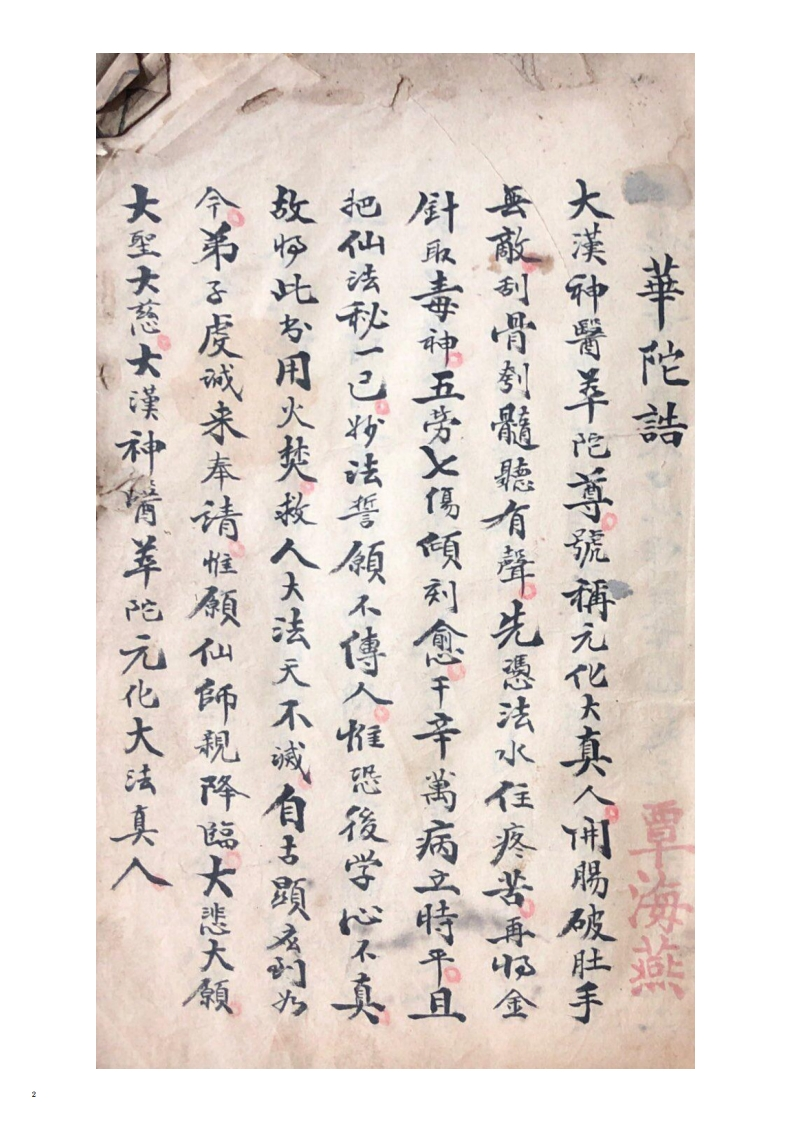 華陀誥
覃海燕
大漢神醫華陀尊號稱元化大真人開腸破肚手
無敵刮骨刳髓聽有聲先憑法水住疼苦再將金
針取毒神五劳七傷傾刻愈千辛萬病立時平且
把仙法秘一己妙法誓願不傳人惟恐後学心不真
故將此书用火焚救人大法天不滅自古顯玄到如
今弟子虔誠来奉請惟願仙師親降臨大悲大願
大聖大慈大漢神醫華陀元化大法真人
2